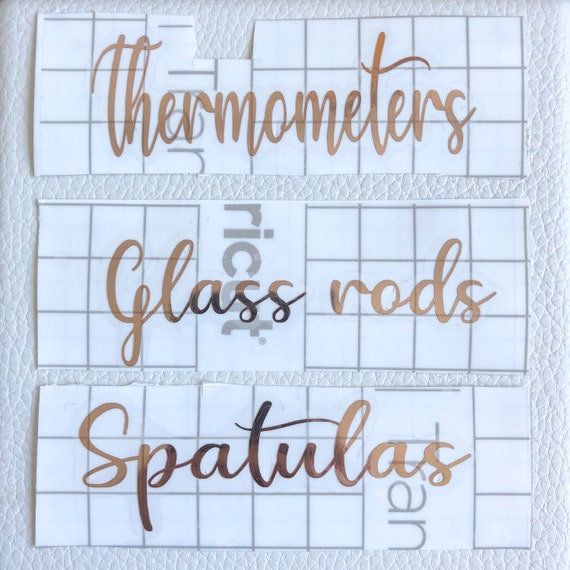 thermometers
Tran
Glass rods
ricut®
Spatulas
Tran